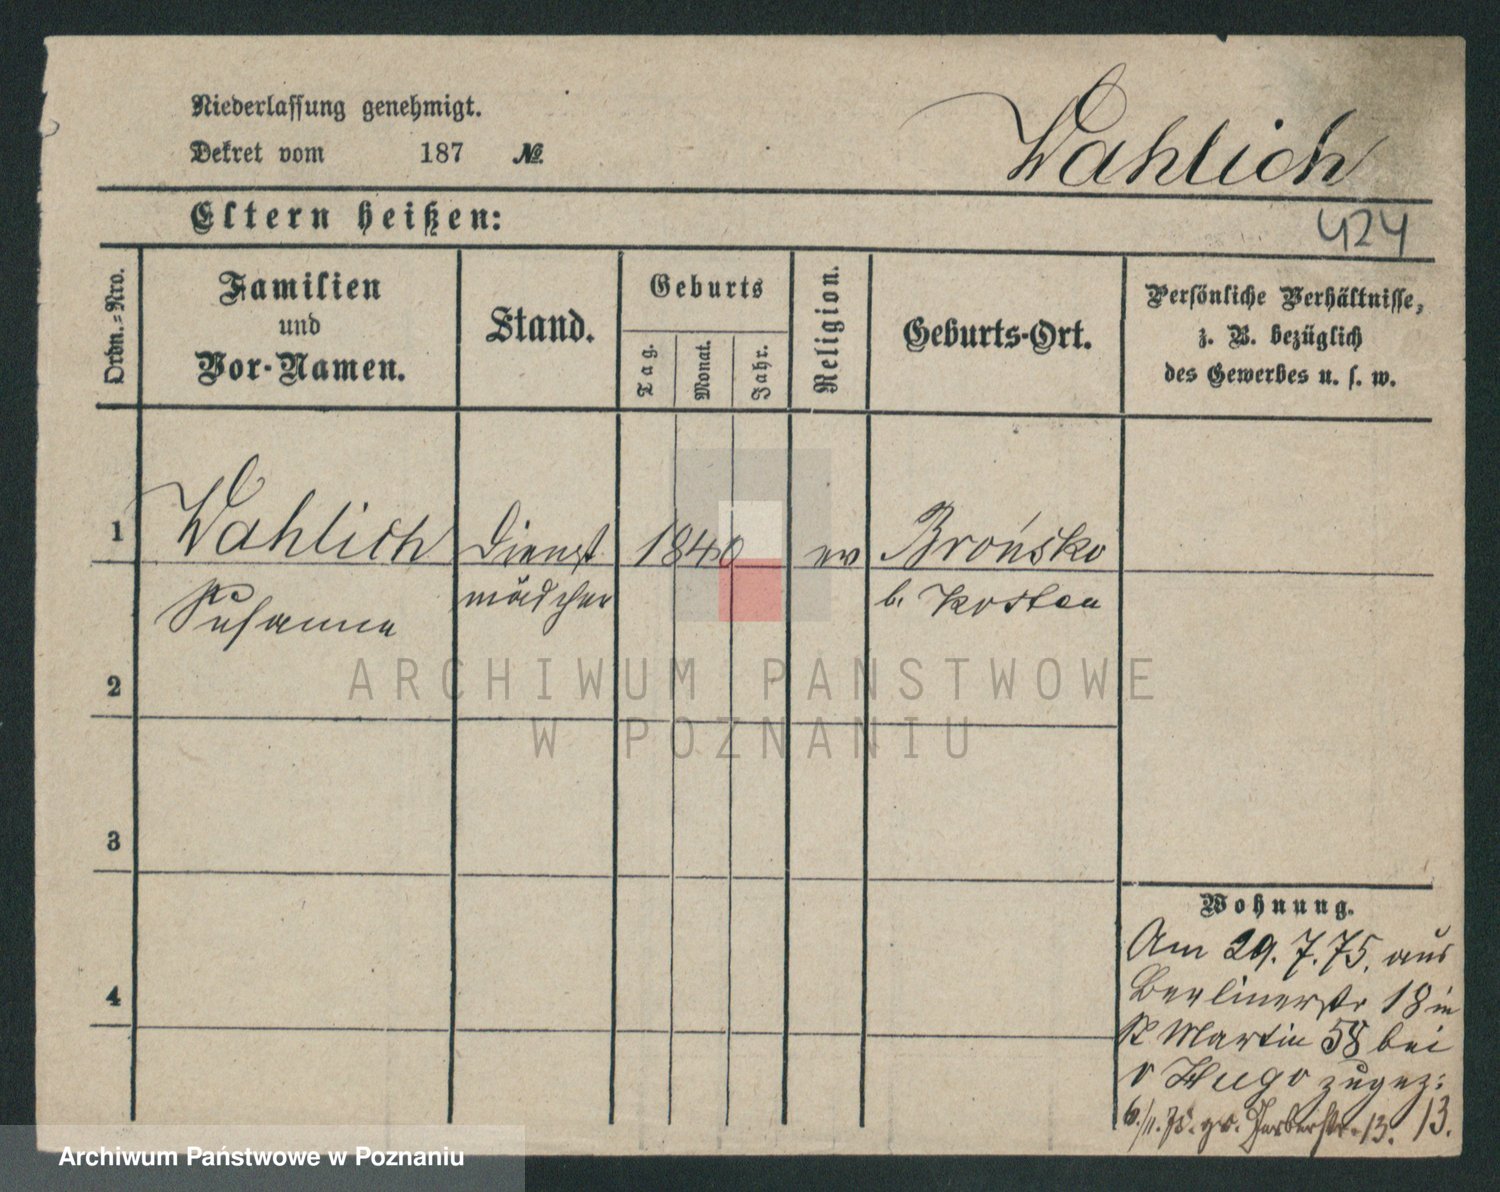 Niederlassung genehmigt.
Dekret vom 187 No.
Wahlich
Eltern heißen:
424
Ordn.-Nro.
Familien
und
Vor-Namen.
Stand.
Geburts
Tag.
Monat.
Jahr.
Religion.
Geburts-Ort.
Persönliche Verhältnisse,
z. B. bezüglich
des Gewerbes u. s. w.
1
Wahlich Dienst 1840 ev Brońsko
Susanne mädchen b. Kosten
2
3
4
ARCHIWUM PAŃSTWOWE
W POZNANIU
Wohnung.
Am 29. 7. 75. aus
Berlinerstr 18 in
St Martin 58 bei
v Hugo zugez:
6./11. 75. gr. Gerberstr. 13. 13.
Archiwum Państwowe w Poznaniu